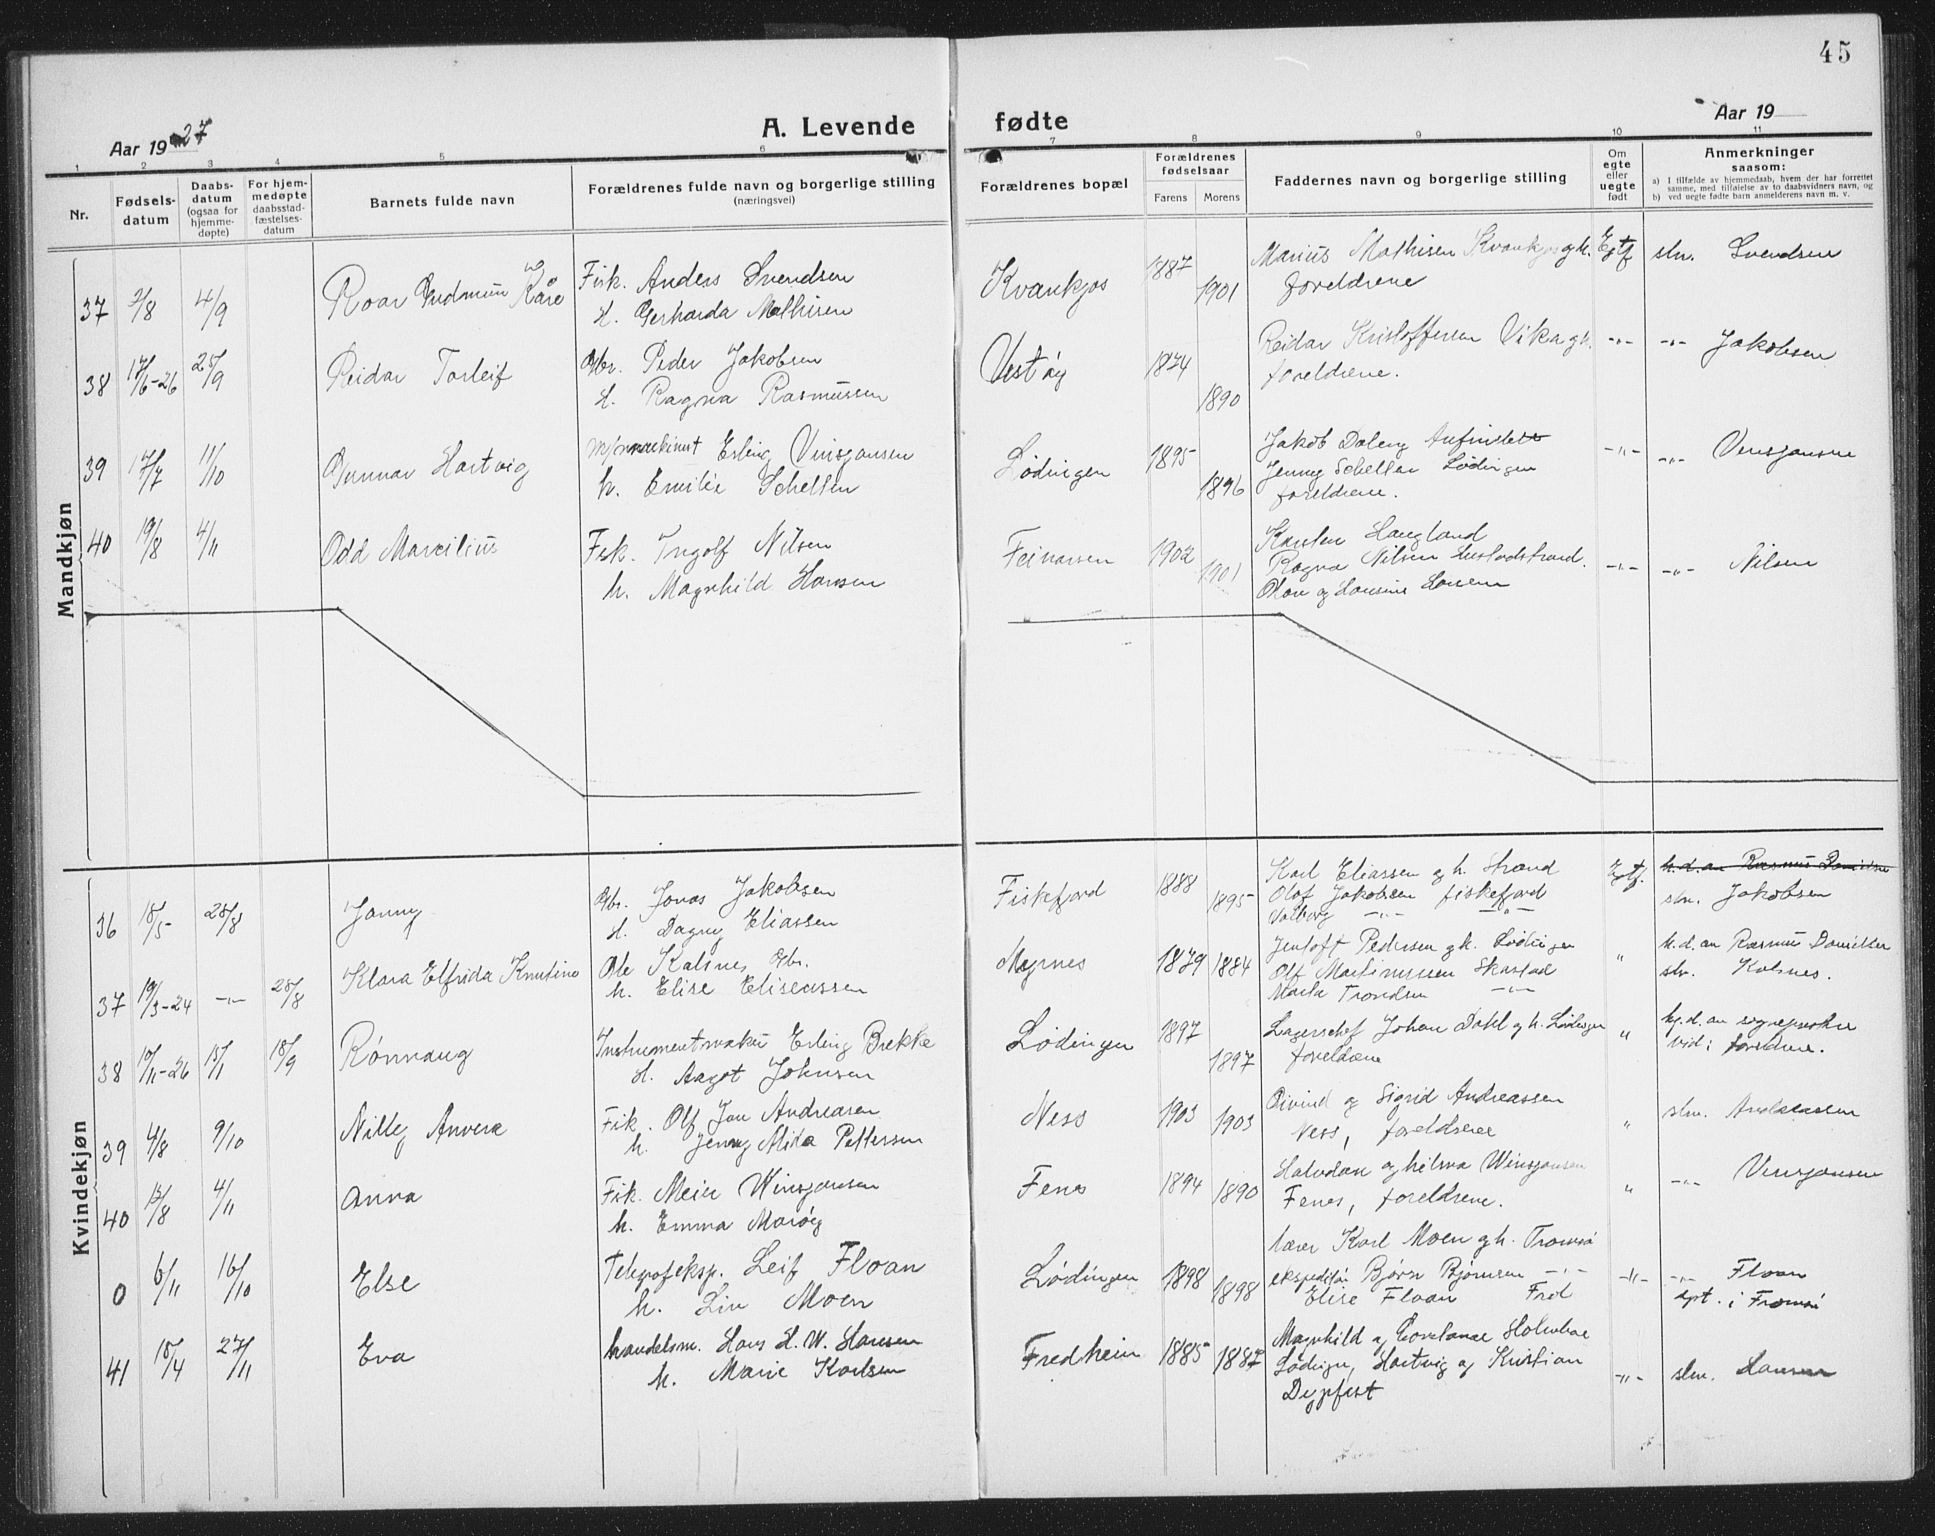 45
Aar 1927
A. Levende
fødte
Aar 19
1 2 3 4 5 6 7 8 9 10 11
Nr.
Fødsels-
datum
Daabs-
datum
(ogsaa for
hjemme-
døpte)
For hjem-
medøpte
daabsstad-
fæstelses-
datum
Barnets fulde navn
Forældrenes fulde navn og borgerlige stilling
(næringsvei)
Forældrenes bopæl
Forældrenes
fødselsaar
Farens Morens
Faddernes navn og borgerlige stilling
Om
egte
eller
uegte
født
Anmerkninger
saasom:
a) I tilfælde av hjemmedaab, hvem der har forrettet
samme, med tilføielse av to daabsvidners navn, og
b) ved uegte fødte barn anmelderens navn m. v.
Mandkjøn
37 2/8 4/9 Roar Gudmun Kåre Fisk. Anders Svendsen Kvankjos 1887 Marius Mathisen Kvankjos g h. Egtf slm. Svendsen
H. Gerharda Mathisen 1901 foreldrene
38 17/6-26 25/9 Reidar Torleif Gbr. Peder Jakobsen Vestøy 1874 Reidar Kristoffersen Vika g h. -"- -"- Jakobsen
H. Ragna Rasmussen 1890 foreldrene.
39 17/7 11/10 Gunnar Hartvig Erling Vinsjansen Lødingen 1895 Jakob
h. Emilie Schelten 1896 Jenny Lødingen -"- -"- Vensjansen
foreldrene.
40 19/8 4/11 Odd Marcilius Fisk. Ingolf Nilsen 1902 Karsten Haugland
h. Magnhild Hansen 1901 Ragna Nilsen -"- -"- Nilsen
Olav og Hansine Hansen
Kvindekjøn
36 15/5- 28/8 Jonny Gbr. Jonas Jakobsen Fiskefjord 1888 Karl Eliassen g h. Strand Egtf.
H. Dagny Eliassen 1895 Olof Jakobsen fiskefjord slm. Jakobsen
Valborg -"- -"-
37 19/3-24 -"- 28/8 Klara Elfrida Knutine Ole Kalsnes Gbr. Myrnes 1879 1884 Jentoft Pedersen g h. Lødingen " h.d. av Rasmus
h. Elise Eliseussen Olf Martinussen Skarstad slm. Kalsnes.
Marta Trondsen -"-
38 10/11-26 15/1 18/9 Rønnaug Instrumentmaker Erling Brekke Lødingen 1897 Lagerchef Johan Dahl g h. Lødingen " hj.d. av sogneprest
H. Aagot Johnsen 1897 foreldrene vid: foreldrene.
39 4/8 9/10 Nilly Anvera Fisk. Olf Jan Andreasen Ness 1903 1903 Øivind og Sigrid Andreassen slm. Andreassen
h. Jenny Mida Pettersen Ness, foreldrene "
40 13/8 4/11 Anna Fisk. Meier Winsjansen Fenes 1894 1890 Halvdan og Winsjansen " -"- Vensjansen
h. Emma Marøy Fenes, foreldrene.
0 6/11 16/10 Else Telegrafeksp. Leif Floan Lødingen 1898 1898 lærer Karl Moen g h. Tromsø
h. Liv Moen ekspeditør Bjørn Bjørnsen -"- -"- -"- Floan
Elise Floan døpt. i Tromsø
41 15/4 27/11 Eva handelsm. Hans H. W. Hansen Fredheim 1885 1887 Magnhild og
h. Marie Karlsen Lødingen, Hartvig og Kristian -"- slm. Hansen
Dypfest